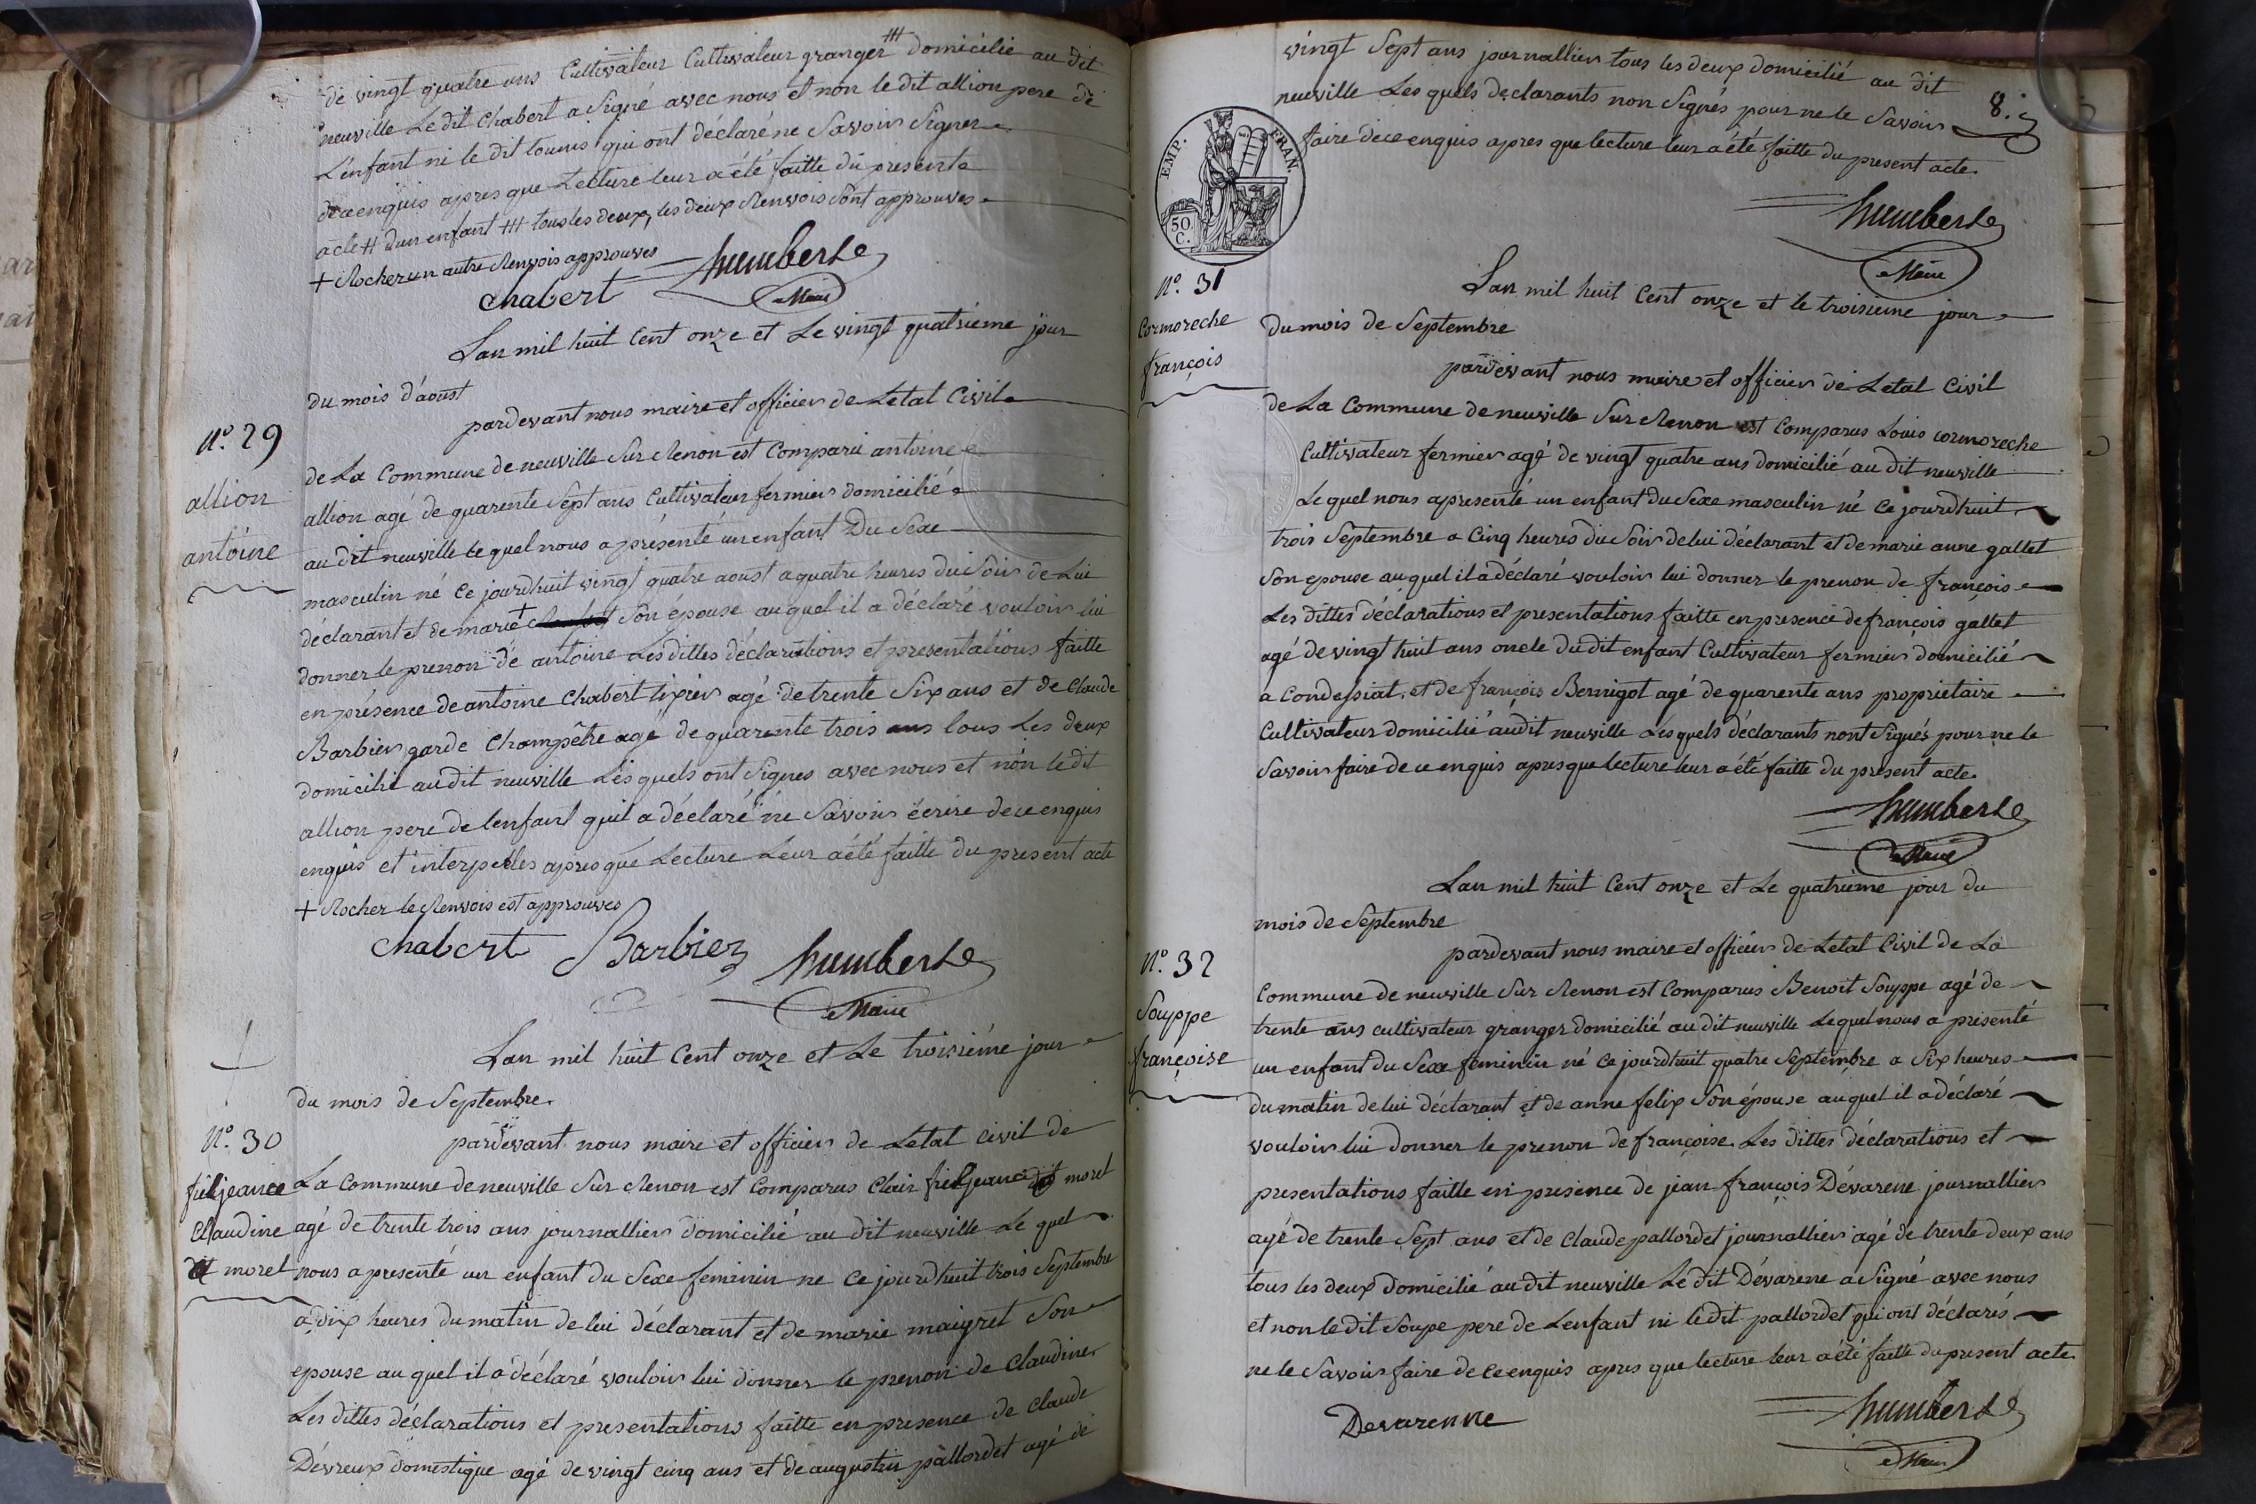 de vingt quatre ans Cultivateur Cultivateur granger ⧻ domicilié au dit
neuville Le dit Chabert a Signé avec nous et non le dit allion pere de
L'enfant ni le dit qui ont déclaré ne Savoir Signer
de ce enquis apres que Lecture leur a été faitte du presente
acte # d'un enfant ⧻ tous les deux, les deux Renvois Sont approuves
+ Rocher un autre Renvois approuves
Chabert humbert
Maire
Lan mil huit Cent onze et Le vingt quatriéme jour
du mois d'aoust
pardevant nous maire et officier de Letat Civil
N.º 29
allion
antoine
de La Commune de neuville Sur Renon est Comparu antoine
allion agé de quarente Sept ans Cultivateur fermier domicilié
au dit neuville le quel nous a présenté un enfant Du Sexe
masculin né Ce jourdhuit vingt quatre aoust a quatre heures du Soir de Lui
déclarant et de marie + Son épouse au quel il a déclaré vouloir lui
donner le prenon de antoine Les dittes déclarations et presentations faitte
en présence de antoine Chabert tixier agé de trente Six ans et de Claude
Barbier garde Champêtre agé de quarente trois ans tous Les deux
domicilié au dit neuville Les quels ont Signes avec nous et non le dit
allion pere de lenfant quil a déclaré ne Savoir écrire de ce enquis
enquis et interpellés apres que Lecture Leur a été faitte du present acte
+ Rocher le Renvois est approuves
Chabert Barbier humbert
Maire
Lan mil huit Cent onze et Le troisiéme jour
du mois de Septembre
pardevant nous maire et officier de Letat civil de
N.º 30
frieljeance
Claudine
dit morel
La Commune de neuville Sur Renon est Comparus Clair frieljeance dit morel
agé de trente trois ans journallier domicilié au dit neuville Le quel
nous a presenté un enfant du Sexe feminin ne Ce jourdhuit trois Septembre
a dix heures du matin de lui déclarant et de marie maigret Son
epouse au quel il a déclaré vouloir lui donner le prenon de Claudine
Les dittes déclarations et presentations faitte en presence de Claude
Dévreux domestique agé de vingt cinq ans et de augustin pallordet agé de
vingt Sept ans journallier tous les deux domicilié au dit
neuville Les quels declarants non Signés pour ne le Savoir
faire de ce enquis apres que lecture leur a été faitte du present acte
8.
EMP. FRAN.
50 C.
humbert
Maire
N.º 31
Cormoreche
françois
Lan mil huit Cent onze et le troisieme jour
du mois de Septembre
pardevant nous maire et officier de Letat Civil
de La Commune de neuville Sur Renon est Comparus Louis cormoreche
Cultivateur fermier agé de vingt quatre ans domicilié au dit neuville
Le quel nous a presenté un enfant du Sexe masculin né Ce jourdhuit
trois Septembre a Cinq heures du Soir de lui déclarant et de marie anne gallet
Son epouse au quel il a déclaré vouloir lui donner le prenon de françois
Les dittes déclarations et presentations faitte en presence de françois gallet
agé de vingt huit ans oncle du dit enfant Cultivateur fermier domicilié
a Condessiat et de françois Bernigot agé de quarente ans proprietaire
Cultivateur domicilié au dit neuville Les quels déclarants nont Signés pour ne le
Savoir faire de ce enquis apres que lecture leur a été faitte du présent acte
humbert
Maire
Lan mil huit Cent onze et Le quatrieme jour du
mois de Septembre
pardevant nous maire et officier de Letat Civil de La
N.º 32
Souppe
françoise
Commune de neuville Sur Renon est Comparus Benoit Souppe agé de
trente ans cultivateur granger domicilié au dit neuville Le quel nous a présenté
un enfant du Sexe feminin né Ce jourdhuit quatre Septembre a Six heures
du matin de lui déclarant et de anne felix Son épouse au quel il a déclaré
vouloir lui donner le prenon de françoise Les dittes déclarations et
presentations faitte en presence de jean françois Dévarene journallier
agé de trente Sept ans et de Claude pallordet journallier agé de trente deux ans
tous les deux domicilié au dit neuville Le dit Dévarene a Signé avec nous
et non le dit Soupe pere de Lenfant ni le dit pallordet qui ont déclarés
ne le Savoir faire de ce enquis apres que lecture leur a été faitte du present acte
Devarenne humbert
Maire